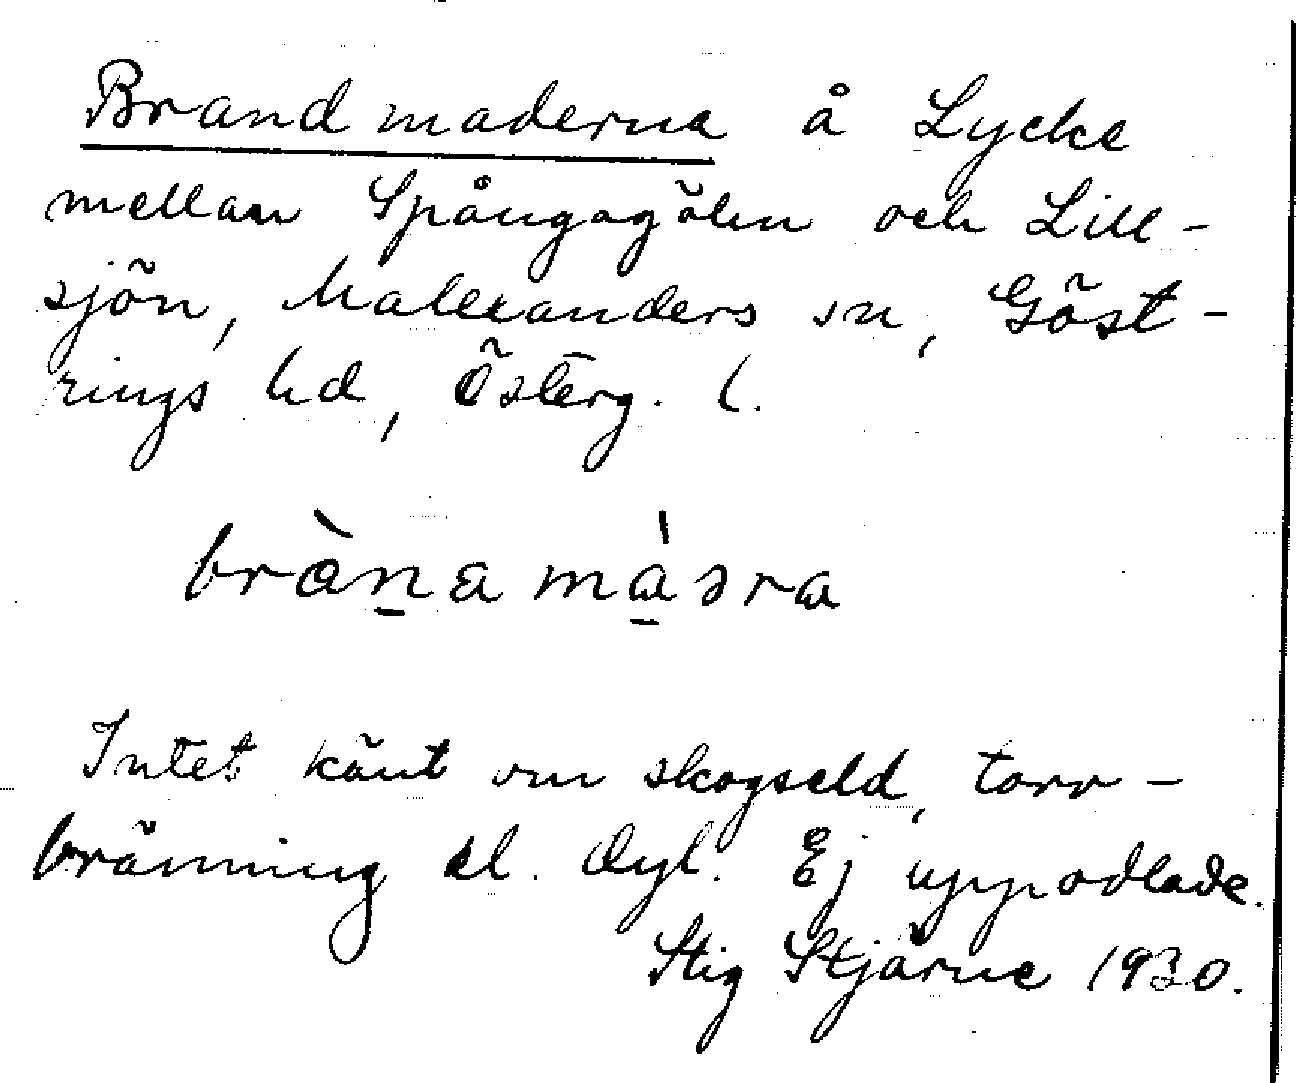 Brandmaderna å Lycke
mellan Spångagölen och Lill-
sjön, Malexanders sn, Göst-
rings hd, Österg. l.
brànamàsra
Intet känt om skogseld, torr-
bränning el. dyl. Ej uppodlade.
Stig Stjärne 1930.